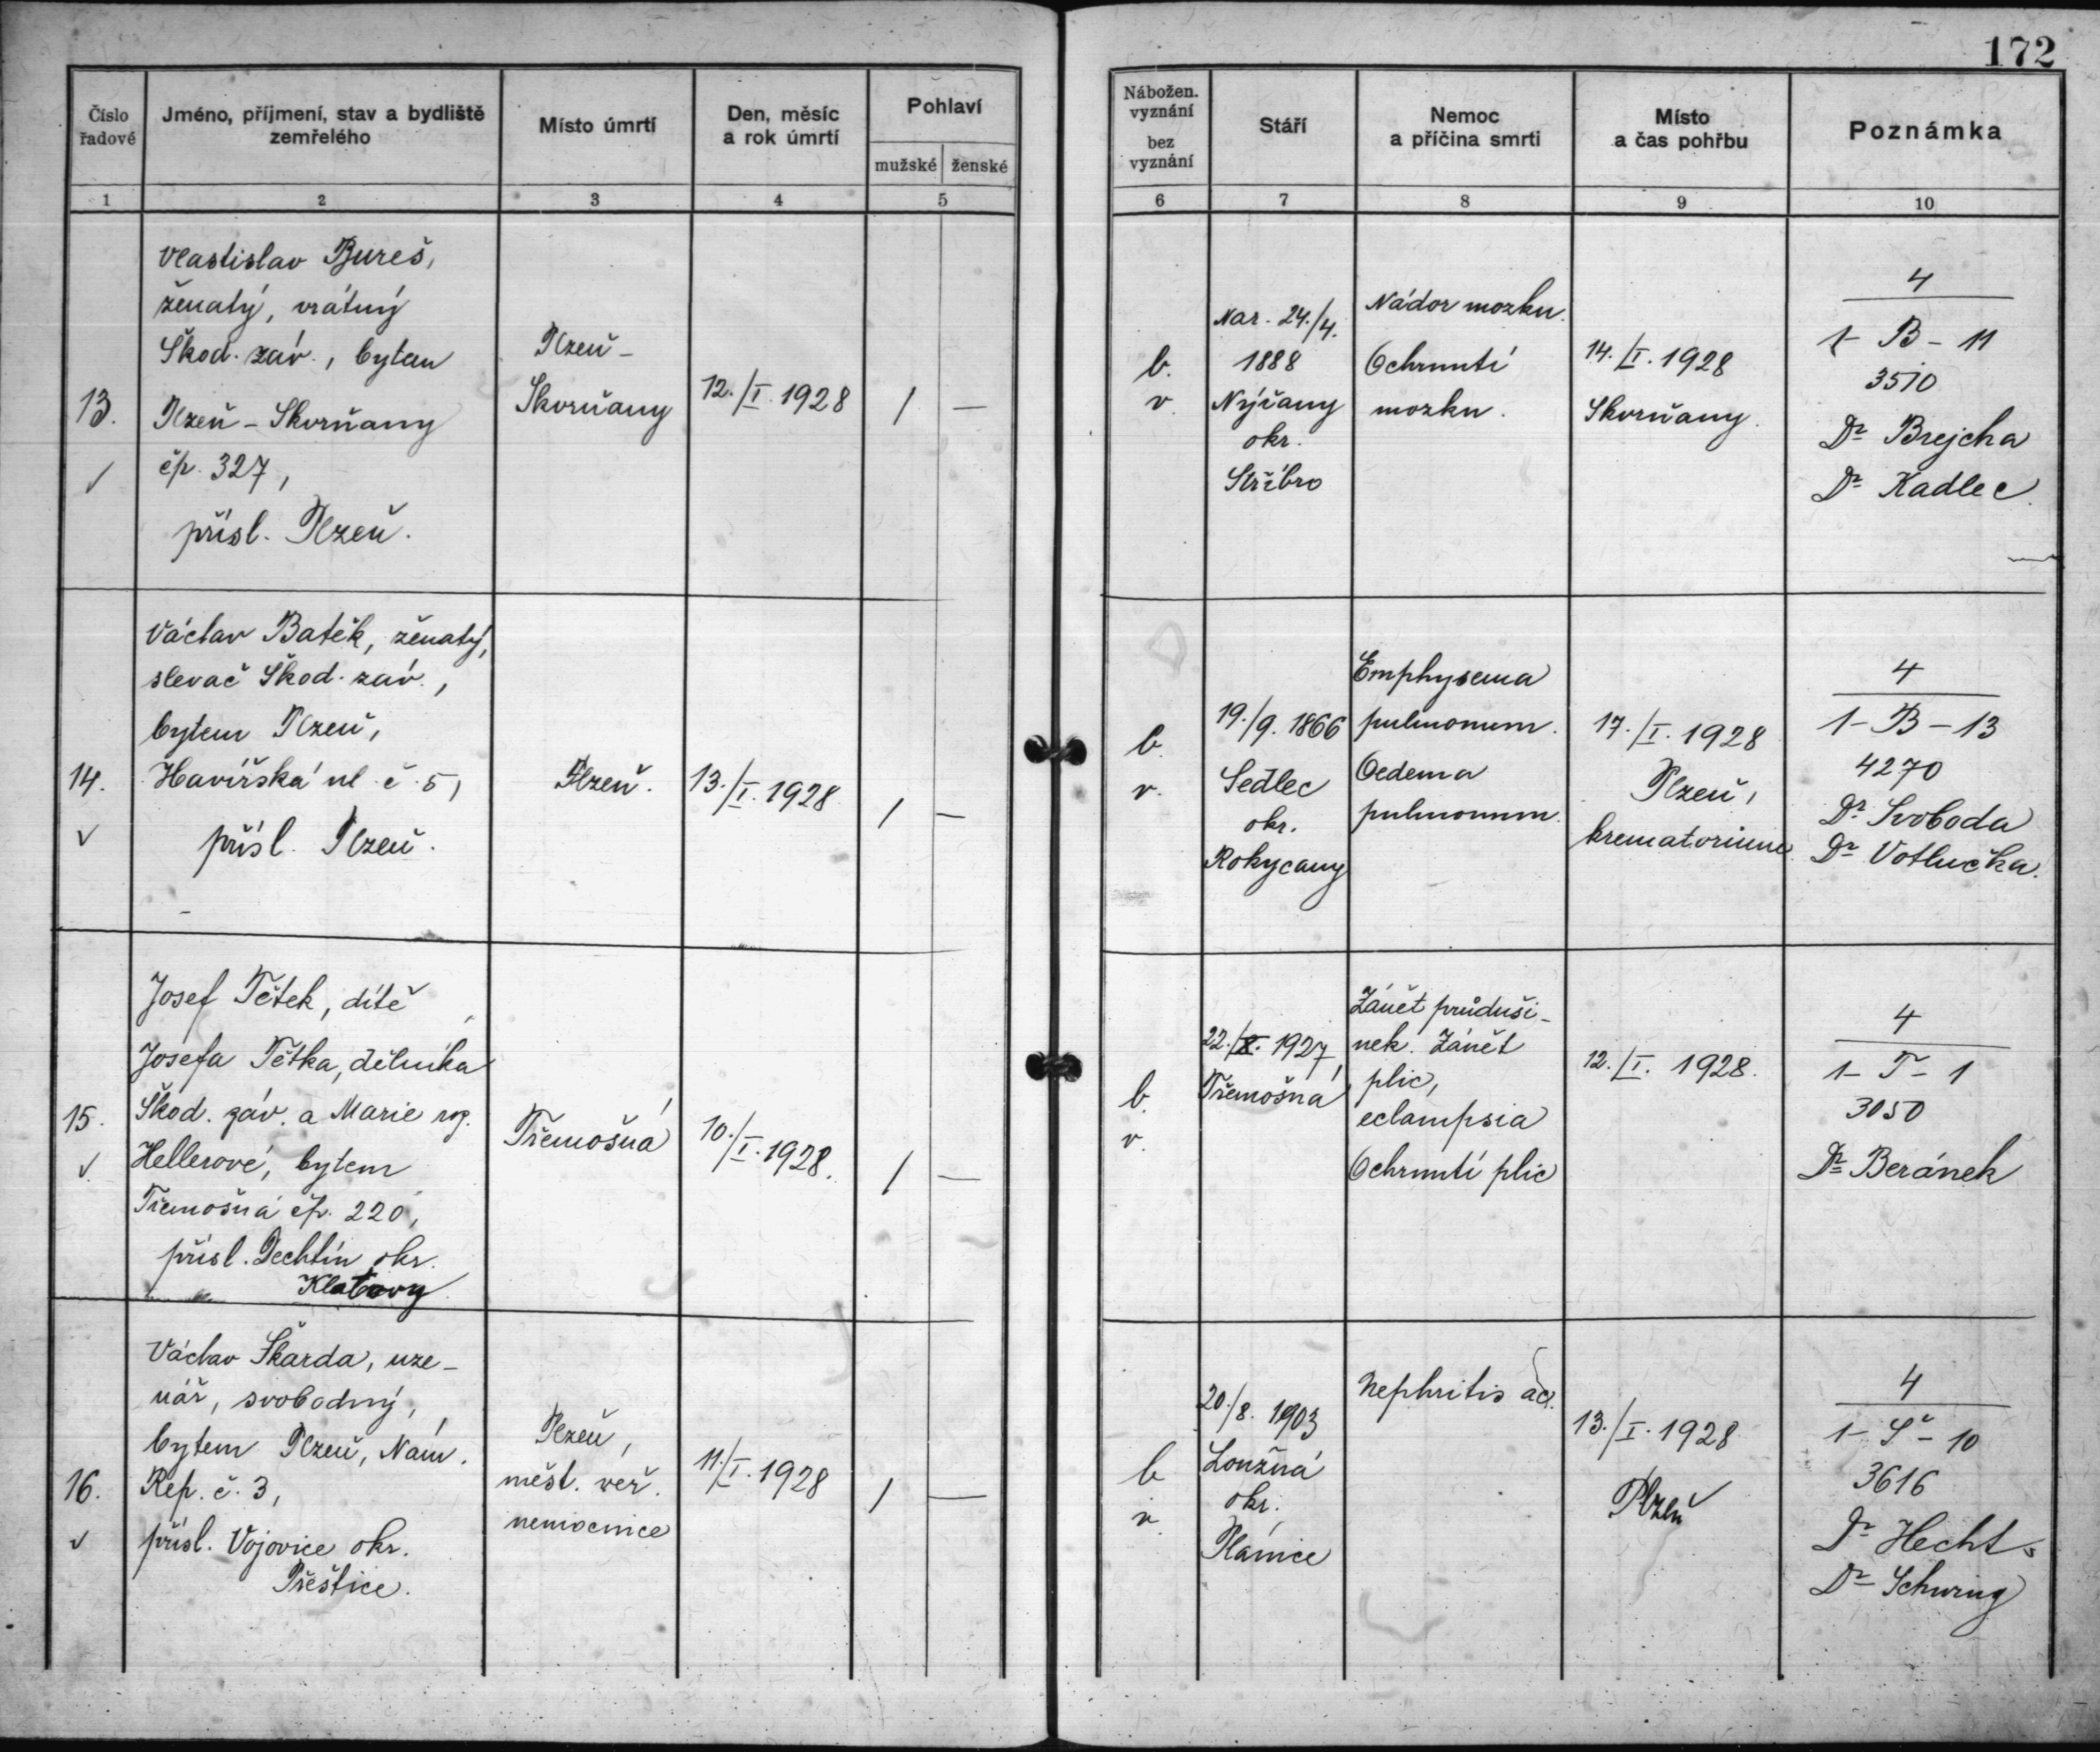 172
Číslo
řadové
Jméno, příjmení, stav a bydliště
zemřelého
Místo úmrtí
Den, měsíc
a rok úmrtí
Pohlaví
mužské ženské
Nábožen.
vyznání
bez
vyznání
Stáří
Nemoc
a příčina smrti
Místo
a čas pohřbu
Poznámka
1 2 3 4 5 6 7 8 9 10
13.
Vlastislav Bureš,
ženatý, vrátný
Škod. záv., bytem
Plzeň - Skvrňany
čp. 327,
přísl. Plzeň.
Plzeň -
Skvrňany
12./I. 1928
/ —
b.
v.
Nar. 24./4.
1888
Nýřany
okr.
Stříbro
Nádor mozku.
Ochrnutí
mozku.
14./I. 1928
Skvrňany.
4
1 - B - 11
3510
Dr Brejcha
Dr Kadlec.
14.
Václav Batěk, ženatý,
slevač Škod. záv.,
bytem Plzeň,
Havířská ul. č. 5,
přísl. Plzeň.
Plzeň.
13./I. 1928
/ —
b.
v.
19./9. 1866
Sedlec
okr.
Rokycany
Emphysema
pulmonum.
Oedema
pulmonum.
17./I. 1928
Plzeň,
krematorium.
4
1 - B - 13
4270
Dr Svoboda
Dr Votlučka.
15.
Josef Tětek, dítě
Josefa Tětka, dělníka
Škod. záv. a Marie roz.
Hellerové, bytem
Třemošná čp. 220,
přísl. Dechtín okr.
Klatovy
Třemošná
10./I. 1928.
/ —
b.
v.
22./X. 1927,
Třemošná
Zánět průduši-
nek. Zánět
plic,
eclampsia
Ochrnutí plic
12./I. 1928.
4
1 - T - 1
3050
Dr Beránek
16.
Václav Škarda, uze-
nář, svobodný,
bytem Plzeň, Nám.
Rep. č. 3,
přísl. Vojovice okr.
Přeštice.
Plzeň,
měst. veř.
nemocnice
11./I. 1928
/ —
b
v.
20./8. 1903
Loužná
okr.
Plánice
Nephritis ac.
13./I. 1928
Plzeň
4
1 - Š - 10
3616
Dr Hecht
Dr Schwing